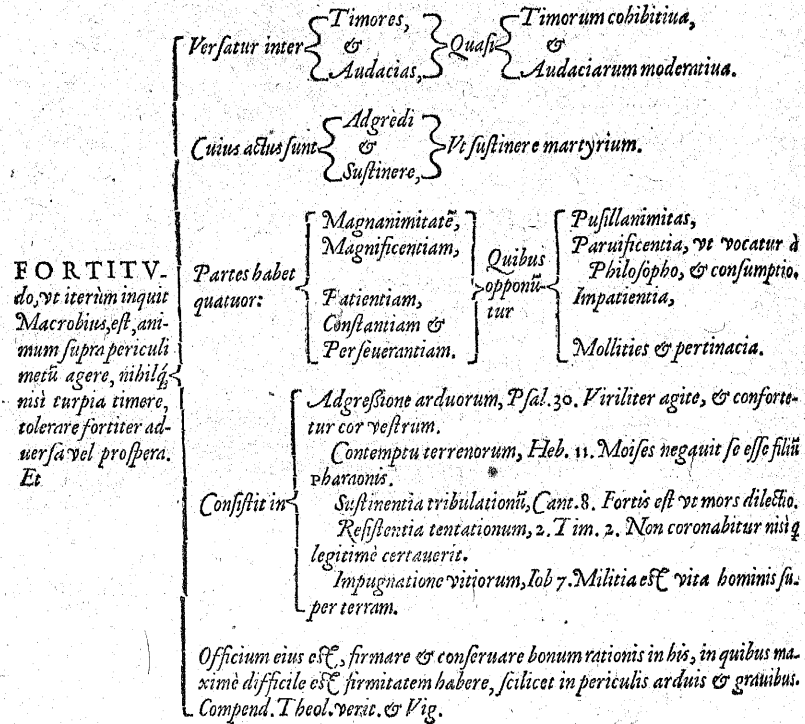 FORTITV-
do, vt iterùm inquit
Macrobius, est, ani-
mum supra periculi
metũ agere, nihilq́;
nisi turpia timere,
tolerare fortiter ad-
uersa vel prospera.
Et
Versatur inter
Timores,
&
Audacias,
Quasi
Timorum cohibitiua,
&
Audaciarum moderatiua.
Cuius actus sunt
Adgredi
&
Sustinere,
Vt sustinere martyrium.
Partes habet
quatuor:
Magnanimitatẽ,
Magnificentiam,
Patientiam,
Constantiam &
Perseuerantiam.
Quibus
opponũ-
tur
Pusillanimitas,
Paruificentia, vt vocatur à
Philosopho, & consumptio,
Impatientia,
Mollities & pertinacia.
Consistit in
Adgreßione arduorum, Psal. 30. Viriliter agite, & conforte-
tur cor vestrum.
Contemptu terrenorum, Heb. 11. Moises negauit se esse filiũ
Pharaonis.
Sustinentia tribulationũ, Cant. 8. Fortis est vt mors dilectio.
Resistentia tentationum, 2. Tim. 2. Non coronabitur nisi q
legitimè certauerit.
Impugnatione vitiorum, Iob 7. Militia est vita hominis su-
per terram.
Officium eius est, firmare & conseruare bonum rationis in his, in quibus ma-
ximè difficile est firmitatem habere, scilicet in periculis arduis & grauibus.
Compend. Theol. verit. & Vig.